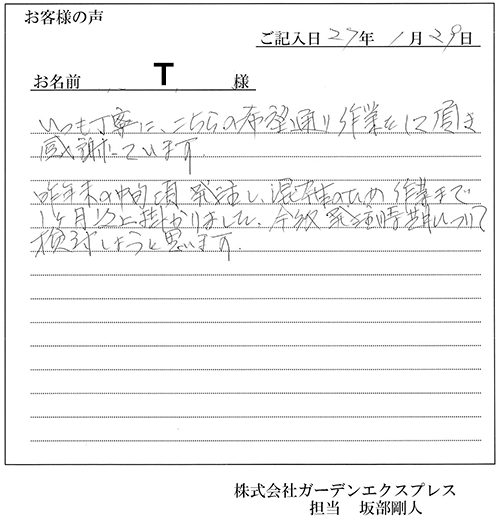 お客様の声
ご記入日 27年 1月 29日
お名前 T 様
いつも丁寧に、こちらの希望通り作業をして頂き
感謝しています。
昨年末の中旬頃発注し、混雑のため作業まで
1ヶ月以上掛かりました。今後発注時期について
検討しようと思います。
株式会社ガーデンエクスプレス
担当 坂部剛人